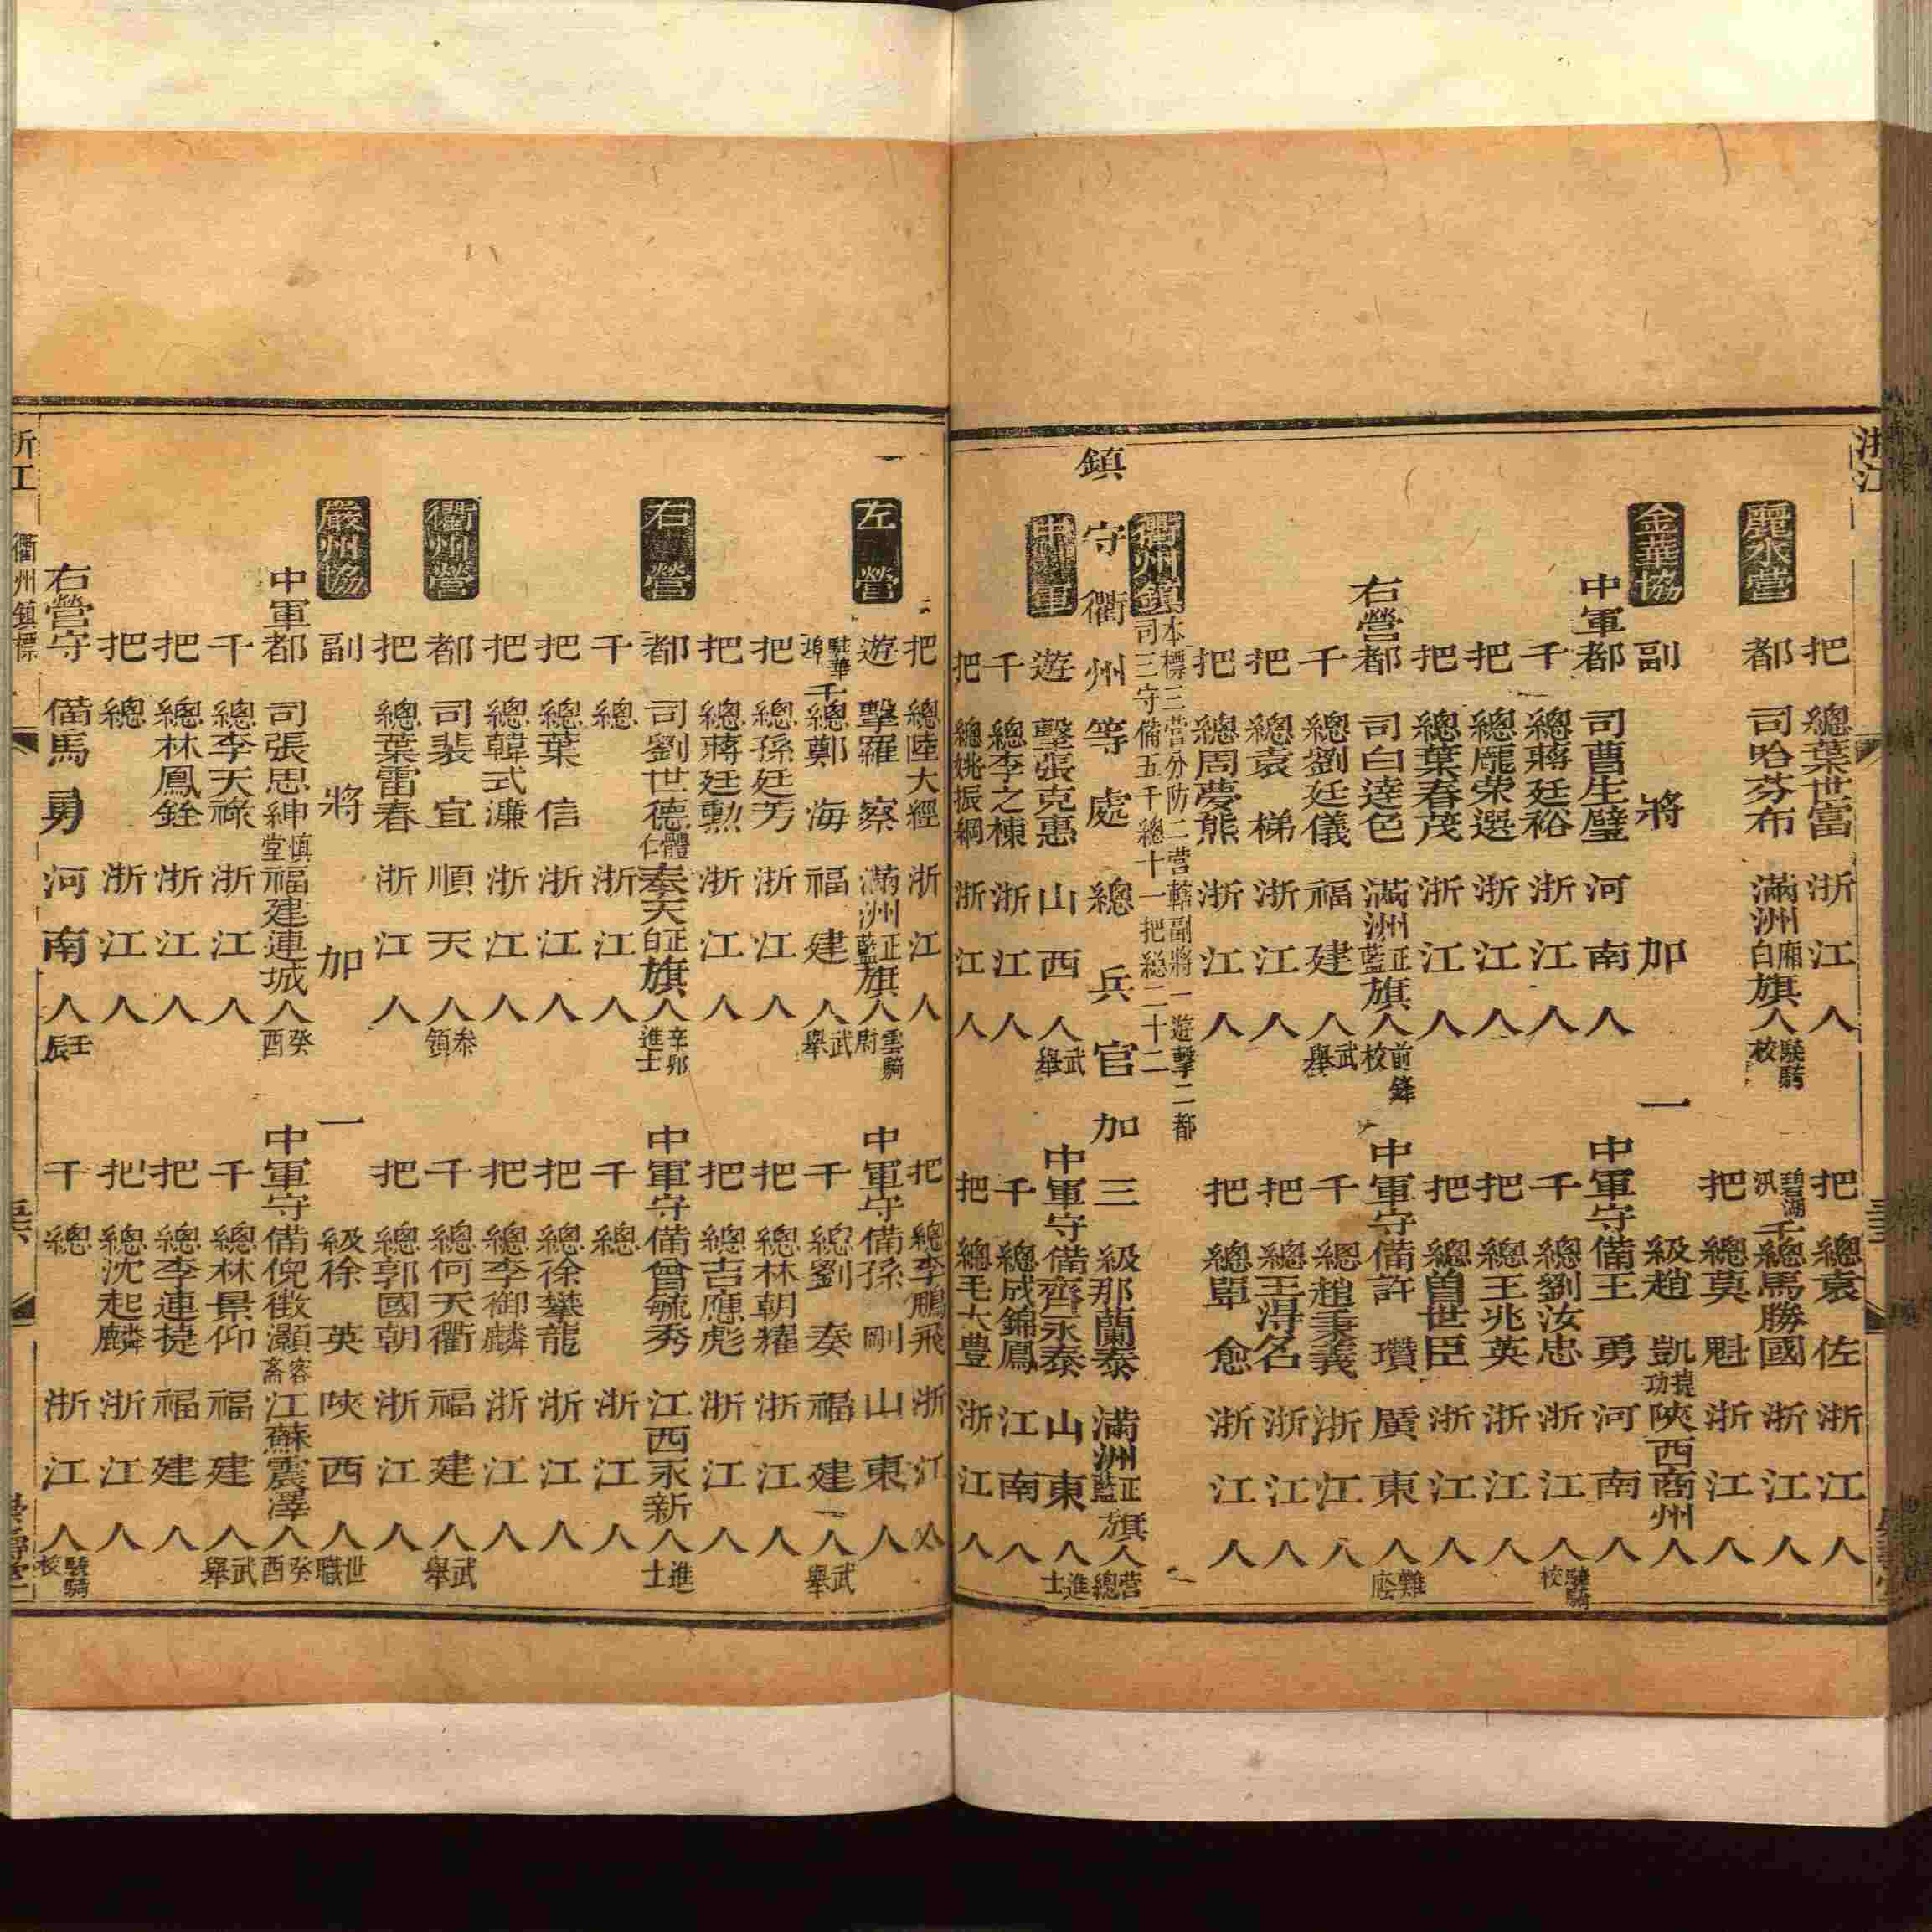 浙江
把總葉世富浙江人 把總袁佐浙江人
麗水營 都司哈芬布滿洲廂白旗人驍騎校 碧湖汛千總馬勝國浙江人
把總莫魁浙江人
金華協 副將加一級趙凱捷功陝西商州人
中軍都司曹生璧河南人 中軍守備王勇河南人
千總蔣廷裕浙江人 千總劉汝忠浙江人驍騎校
把總龐荣選浙江人 把總王兆英浙江人
把總葉春茂浙江人 把總曾世臣浙江人
右營都司白達色滿洲正藍旗人前鋒校 中軍守備許瓚廣東人難廕
千總劉廷儀福建人武舉 千總趙秉義浙江人
把總袁梯浙江人 把總王淂名浙江人
把總周夢熊浙江人 把總單愈浙江人
衢州鎮 本標三营分防二营轄副將一遊擊二都司三守備五千總十一把総二十二
鎮守衢州等處總兵官加三級那蘭泰滿洲正藍旗人营總
中軍 遊擊張克惠山西人武舉 中軍守備齊永泰山東人進士
千總李之棟浙江人 千總成錦鳳江南人
把總姚振綱浙江人 把總毛大豊浙江人
把總陸大經浙江人 把總李鵬飛浙江人
左營 遊擊羅察滿洲正藍旗人雲騎尉 中軍守備孫剛山東人
駐華埠千總鄭海福建人武舉 千總劉奏福建人武舉
把總孫廷芳浙江人 把總林朝耀浙江人
把總蔣廷勲浙江人 把總吉應彪浙江人
右營 都司劉世德體仁奉天正白旗人辛夘進士 中軍守備曾毓秀江西永新人進士
千總浙江人 千總浙江人
把總葉信浙江人 把總徐攀龍浙江人
把總韓式濂浙江人 把總李御麟浙江人
衢州營 都司裴宜順天人叅領 千總何天衢福建人武舉
把總葉雷春浙江人 把總郭國朝浙江人
嚴州協 副將加一級徐英陝西人世職
中軍都司張思紳慎堂福建連城人癸酉 中軍守備倪徵灝容齋江蘇震澤人癸酉
千總李天祿浙江人 千總林景仰福建人武舉
把總林鳳銓浙江人 把總李連捷福建人
把總浙江人 把總沈起麟浙江人
右營守備馬勇河南人壬辰 千總浙江人驍騎校
浙江 衢州鎮標